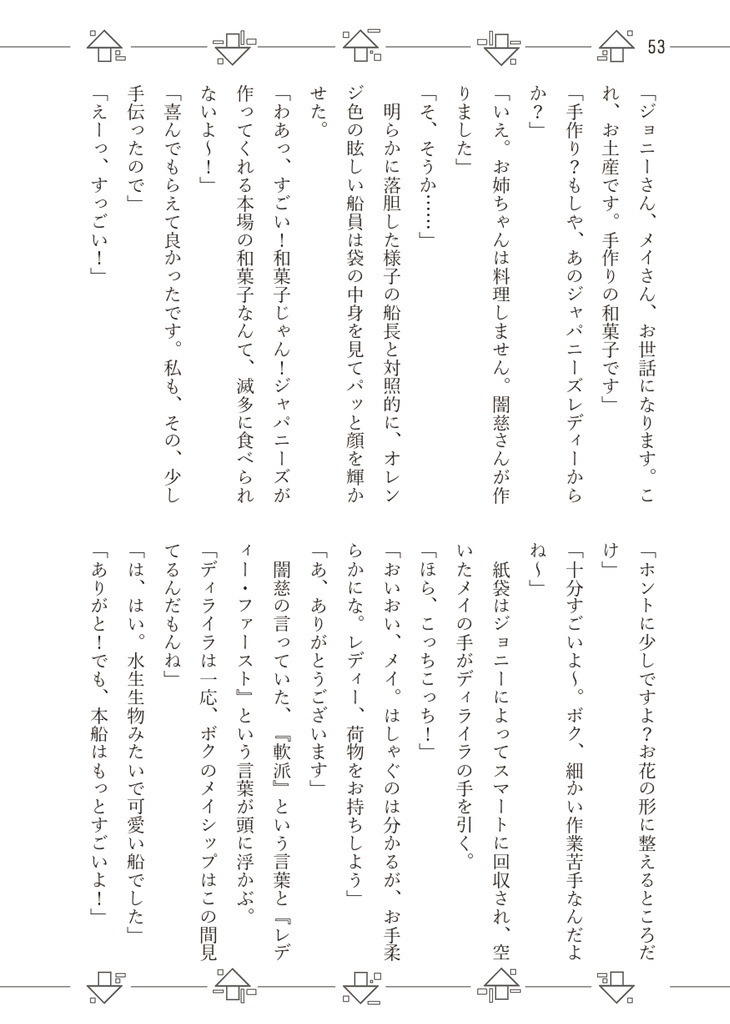 53
「ジョニーさん、メイさん、お世話になります。こ
れ、お土産です。手作りの和菓子です」
「手作り？もしや、あのジャパニーズレディーから
か？」
「いえ。お姉ちゃんは料理しません。闇慈さんが作
りました」
「そ、そうか……」
明らかに落胆した様子の船長と対照的に、オレン
ジ色の眩しい船員は袋の中身を見てパッと顔を輝か
せた。
「わあっ、すごい！和菓子じゃん！ジャパニーズが
作ってくれる本場の和菓子なんて、滅多に食べられ
ないよ〜！」
「喜んでもらえて良かったです。私も、その、少し
手伝ったので」
「えーっ、すっごい！」
「ホントに少しですよ？お花の形に整えるところだ
け」
「十分すごいよ〜。ボク、細かい作業苦手なんだよ
ね〜」
紙袋はジョニーによってスマートに回収され、空
いたメイの手がディライラの手を引く。
「ほら、こっちこっち！」
「おいおい、メイ。はしゃぐのは分かるが、お手柔
らかにな。レディー、荷物をお持ちしよう」
「あ、ありがとうございます」
闇慈の言っていた、『軟派』という言葉と『レデ
ィー・ファースト』という言葉が頭に浮かぶ。
「ディライラは一応、ボクのメイシップはこの間見
てるんだもんね」
「は、はい。水生生物みたいで可愛い船でした」
「ありがと！でも、本船はもっとすごいよ！」